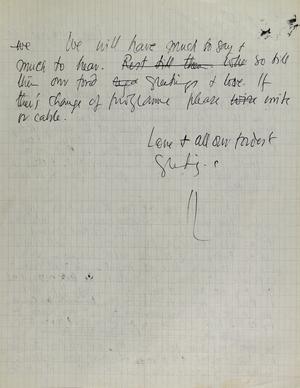 we We will have much to say +
much to hear. Rest till then so till
then our fond greetings + love. If
there's change of programme please write
or cable.
Love + all our fondest
Greetings.